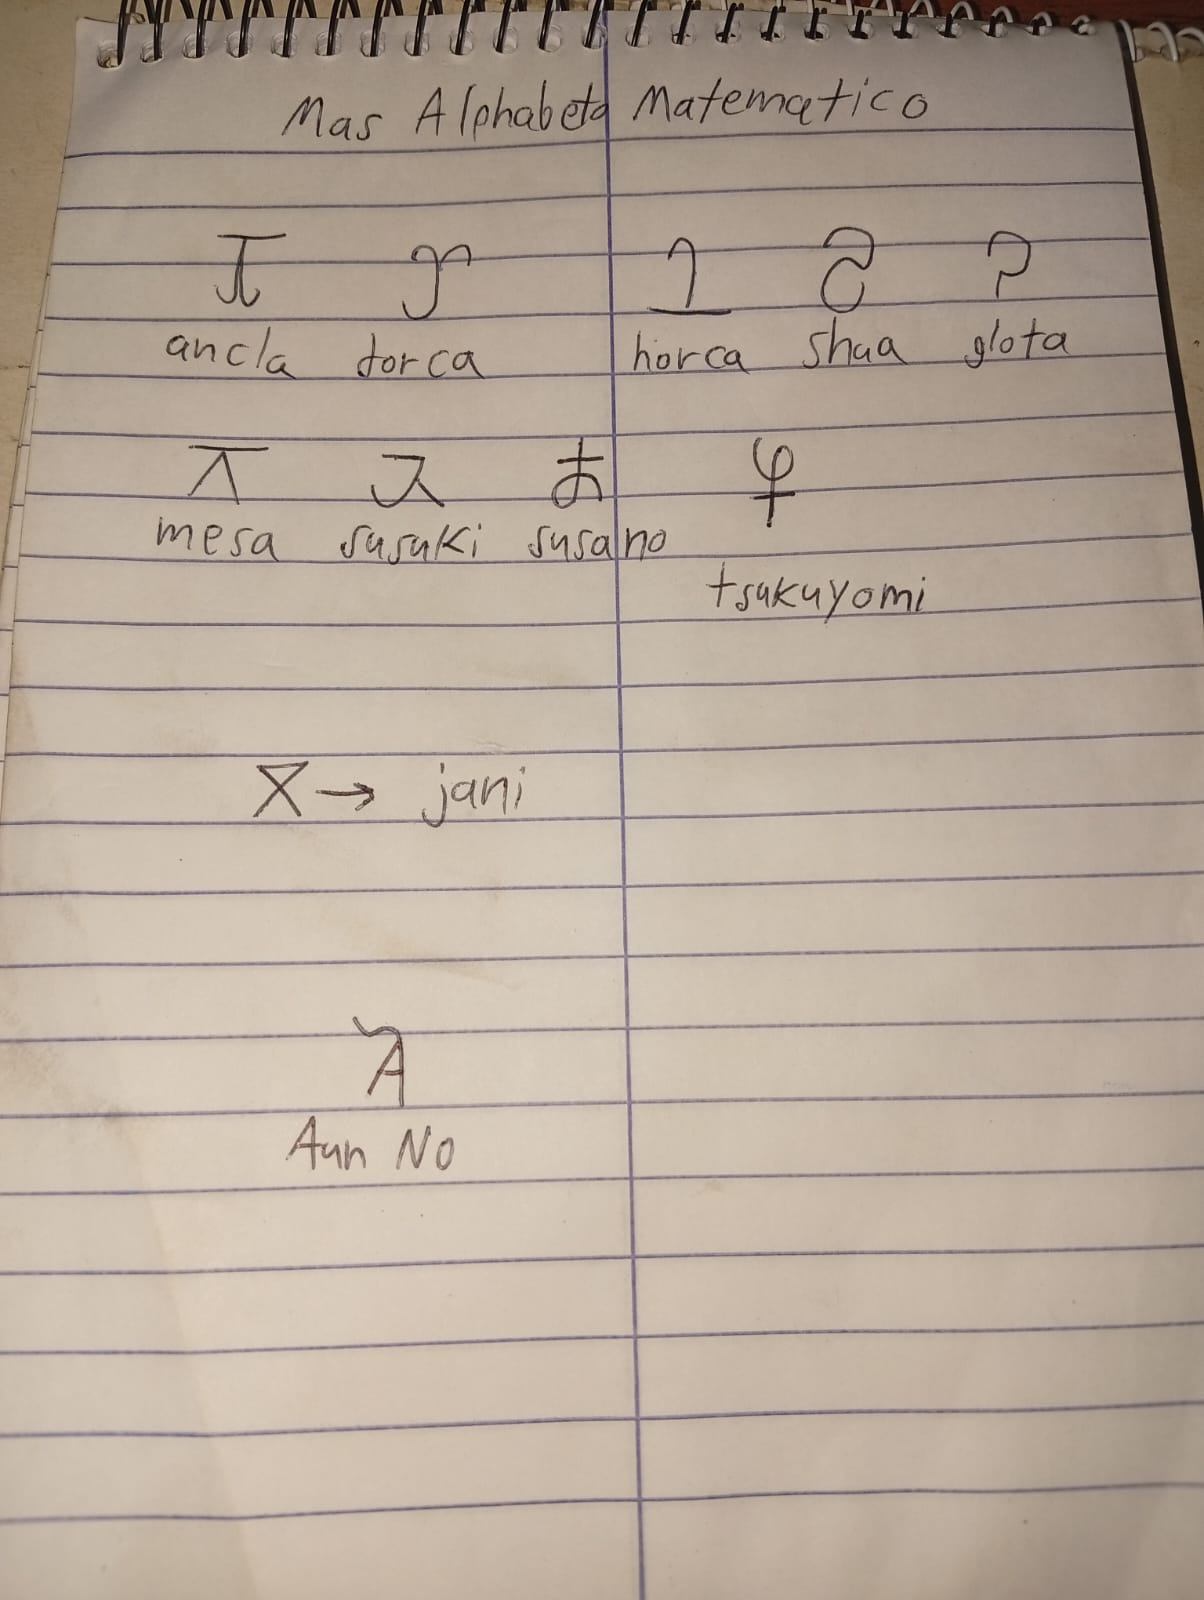 Mas Alphabeto Matematico
ancla torca horca shua glota
mesa susuki susano
tsukuyomi
X → jani
Aun No